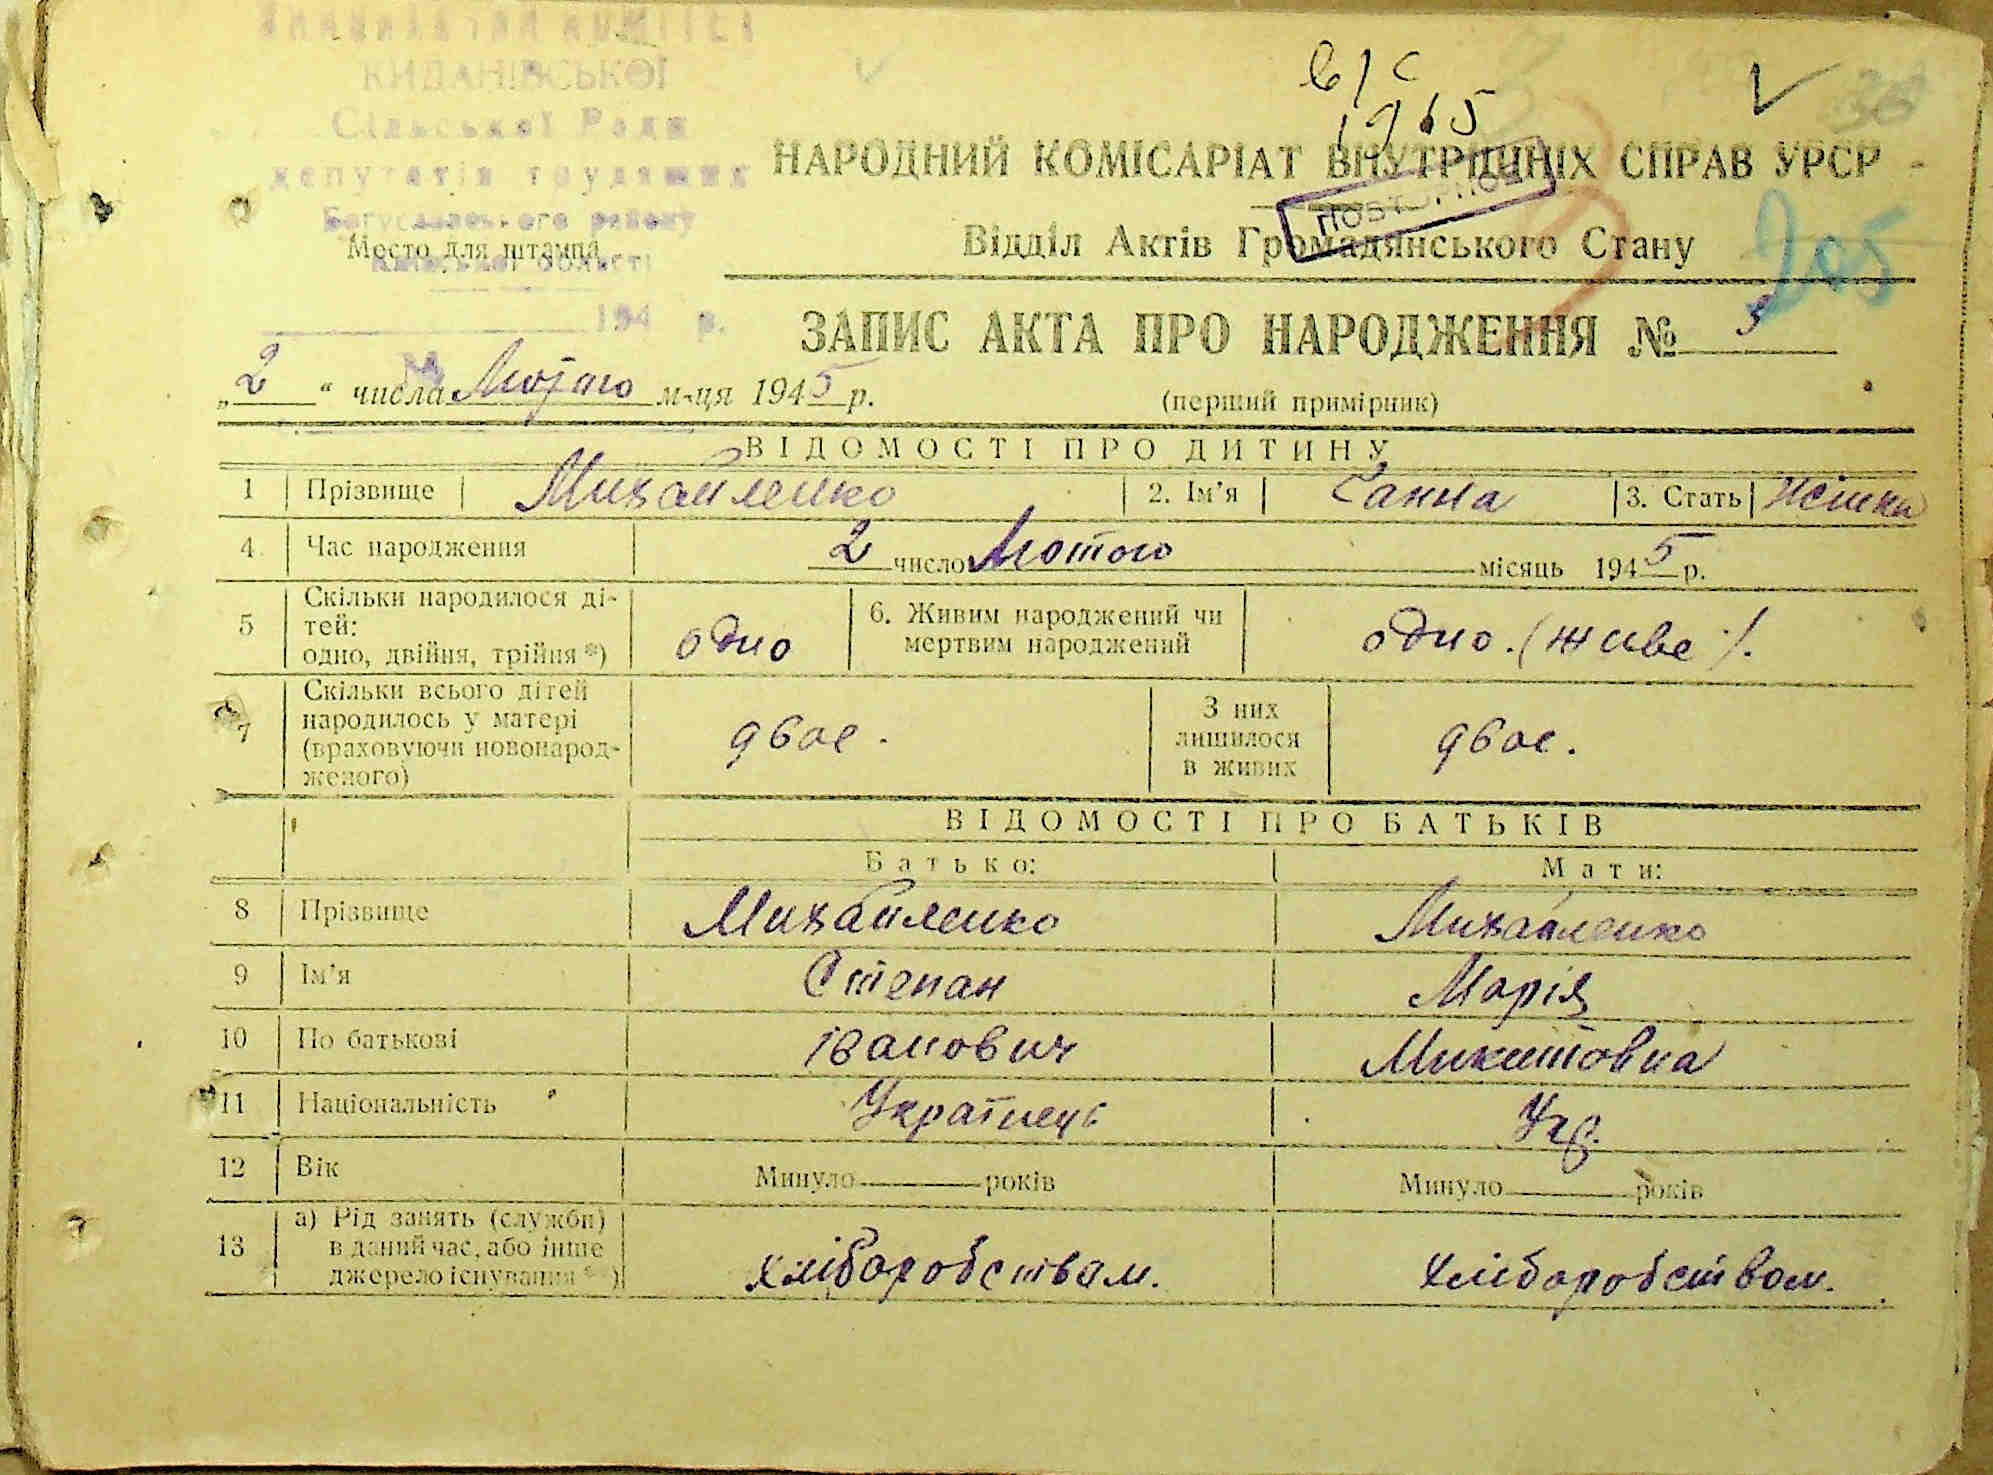 КИДАНІВСЬКОЇ
Сільської Ради
депутатів трудящих
Богуславського району
Київської області
Место для штампа
194 р.
в/с
1965
36
НАРОДНИЙ КОМІСАРІАТ ВНУТРІШНІХ СПРАВ УРСР
ПОВТОРНОЕ
Відділ Актів Громадянського Стану
205
ЗАПИС АКТА ПРО НАРОДЖЕННЯ № 3
„2“ числа Лютого м-ця 1945 р.
(перший примірник)
ВІДОМОСТІ ПРО ДИТИНУ
1 Прізвище Михайленко 2. Ім'я Ганна 3. Стать Жіноча
4 Час народження 2 число Лютого місяць 1945 р.
5 Скільки народилося дітей: одно, двійня, трійня *) одно 6. Живим народжений чи мертвим народжений одно. (живе).
7 Скільки всього дітей народилось у матері (враховуючи новонародженого) двоє. З них лишилося в живих двоє.
ВІДОМОСТІ ПРО БАТЬКІВ
Батько: Мати:
8 Прізвище Михайленко Михайленко
9 Ім'я Степан Марія
10 По батькові Іванович Микитовна
11 Національність Українець Укр.
12 Вік Минуло років Минуло років
13 а) Рід занять (служби) в даний час, або інше джерело існування **) хліборобством. хліборобством.